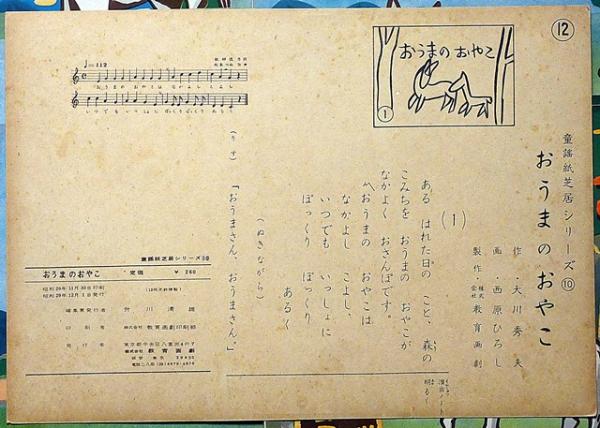 ⑫
童謡紙芝居シリーズ⑩
おうまのおやこ
作・大川秀夫
画・西原ひろし
製作・株式会社教育画劇
おうまのおやこ
①
(1)
ある はれた日の こと、森の
こみちを おうまの おやこが
なかよく おさんぽです。
〽おうまの おやこは
なかよし こよし、
いつでも いっしょに
ぽっくり ぽっくり あるく
(ぬきながら)
「おうまさん、おうまさん。」
明るく
♩=112
おうまの おやこは なかよし こよし
いつでも いっしょに ぽっくりぽっくり あるく
童謡紙芝居シリーズ10
おうまのおやこ 定価 ¥260
昭和29年11月30日印刷
昭和29年12月1日発行
編集兼発行者
印刷者 株式会社 教育画劇印刷部
発行者
株式会社 教育画劇